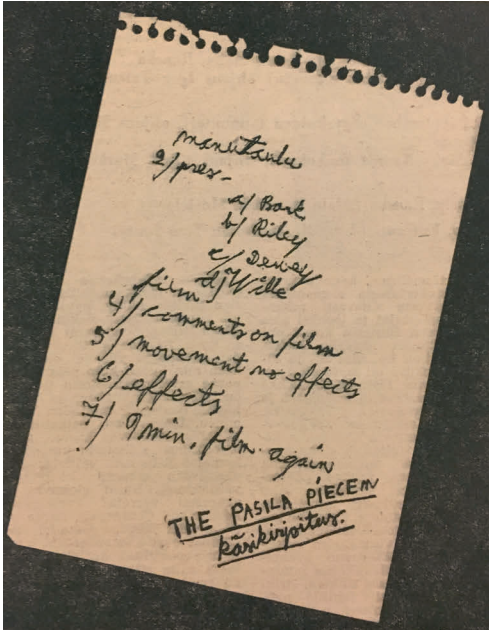 2/ pres-
a/ Bark
b/ Riley
c/ Dewey
film d/ Wille
4/ comments on film
5/ movement no effects
6/ effects
7/ 9 min. film again
THE PASILA PIECEM
käsikirjoitus.